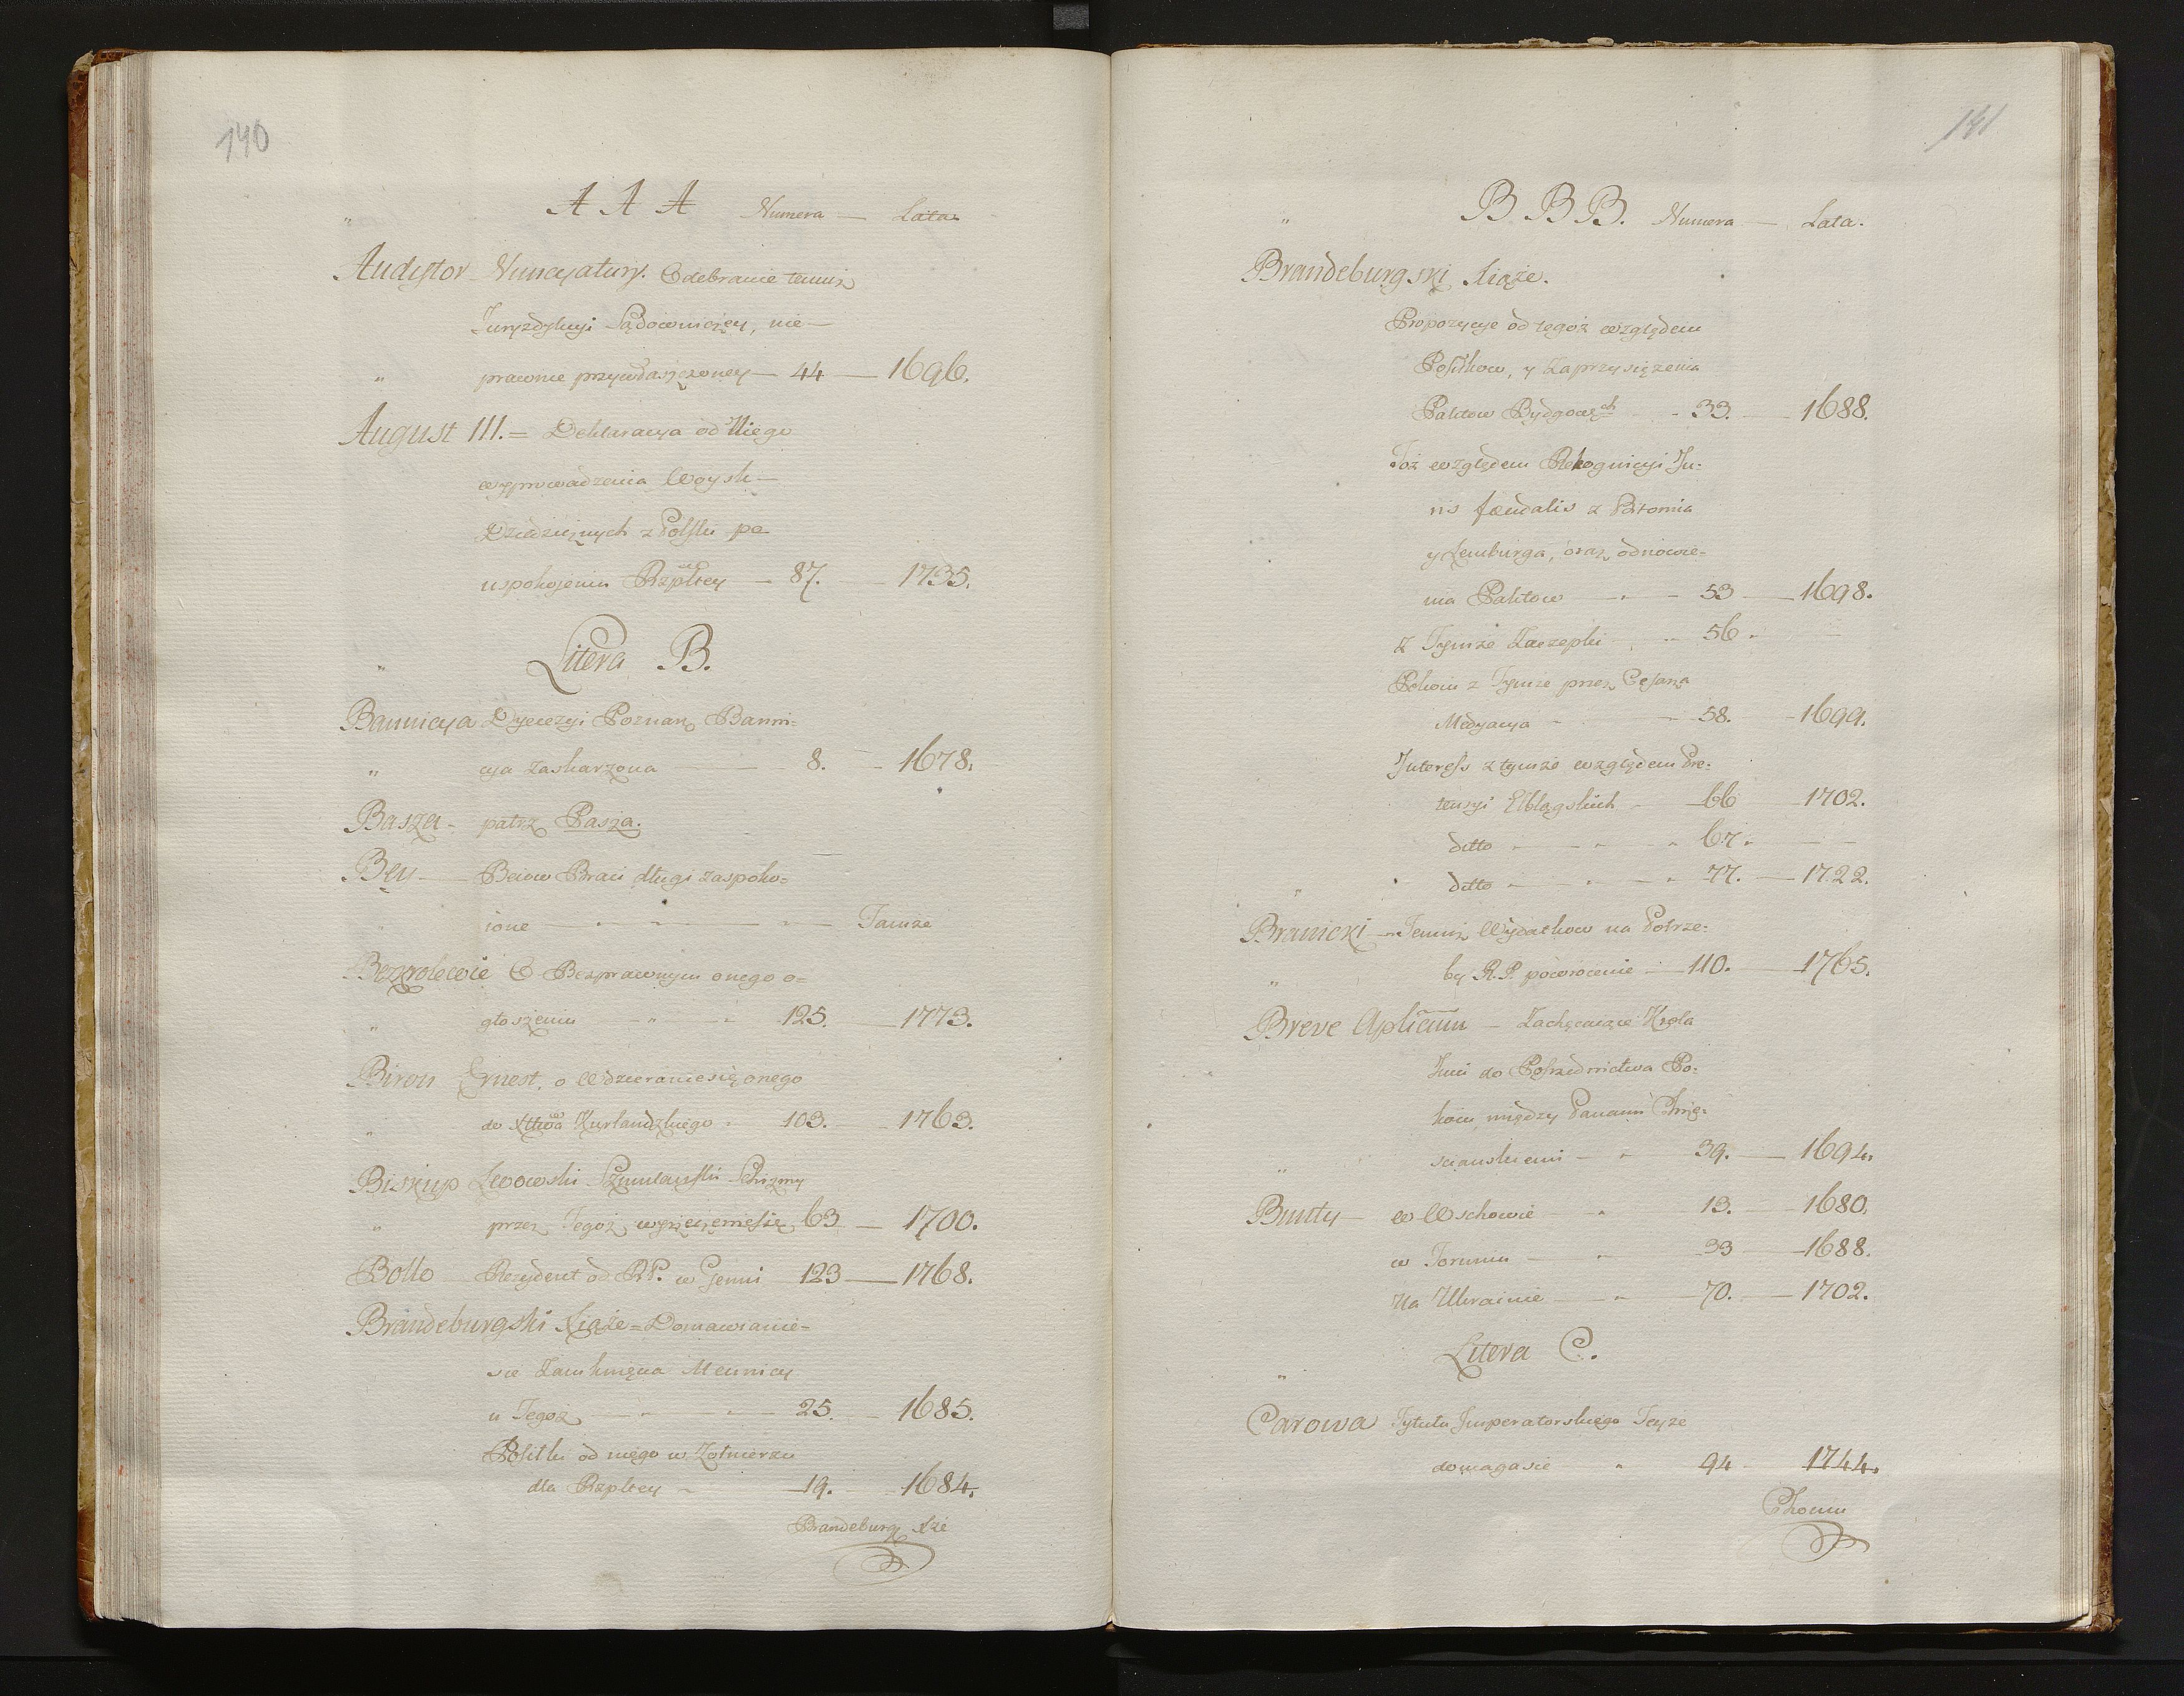 140
A A A Numera — Lata
Audytor Nuncyatury. Odebranie temuż
Juryzdykcyi Sądowniczey, nie—
prawnie przywłaszczoney — 44 — 1696.
August III. = Deklaracya od Niego
wyprowadzenia Woysk—
Dziedzicznych z Polski po
uspokojeniu Rzpltey — 87. — 1735.
Litera B.
Bannicya Dyecezyi Poznań Banni=
cya zaskarzona — 8. — 1678.
Basza — patrz Pasza.
Bey — Beiow Braci długi zaspoko=
ione — Tamze
Bezkrolewie O Bezprawnym onego o=
głoszeniu — 125. — 1773.
Biron Ernest, o Wdzieranie się onego
do Xttwa Kurlandzkiego — 103. — 1763.
Biskup Lwowski Szumlański Schizmy
przez Tegoż wyrzeczenie się 63 — 1700.
Bollo Rezydent od RP. w Genui 123 — 1768.
Brandeburgski Xiąże = Domawianie=
sie Zamknięcia Mennicy
u Tegoż — 25. — 1685.
Posiłki od niego w Zołnierzu
dla Rzpltey — 19. 1684.
Brandeburg Xże
141
B B B. Numera — Lata.
Brandeburgski Xiąże.
Propozycye od tegoż względem
Posiłkow, y Zaprzysiężenia
Paktow Bydgoskch — 33. — 1688.
Toż względem Rekognicyi Ju=
ris fœudalis z Bitomia
y Lemburga, oraz odnowie=
nia Paktow — 53 — 1698.
Z Tymże Zaczepki — 56. —
Pokoiu z Tymże przez Cesarza
Medyacya — 58. — 1699.
Interess z tymże względem Pre=
tensyi Elblągskich — 66 1702.
ditto — 67. —
ditto — 77. — 1722.
Branicki — Temuż Wydatkow na Potrze=
by R.P. powrocenie — 110. 1765.
Breve Aplicum — Zachęcaiące Krola
Jmci do Posrzednictwa Po=
koiu między Panami Chrze=
scianskiemi — 39. — 1694.
Bunty — w Wschowie — 13. — 1680.
w Toruniu — 33 — 1688.
Na Ukrainie — 70. — 1702.
Litera C.
Carowa Tytułu Imperatorskiego Teyże
domaga sie 94 1744.
Chocim